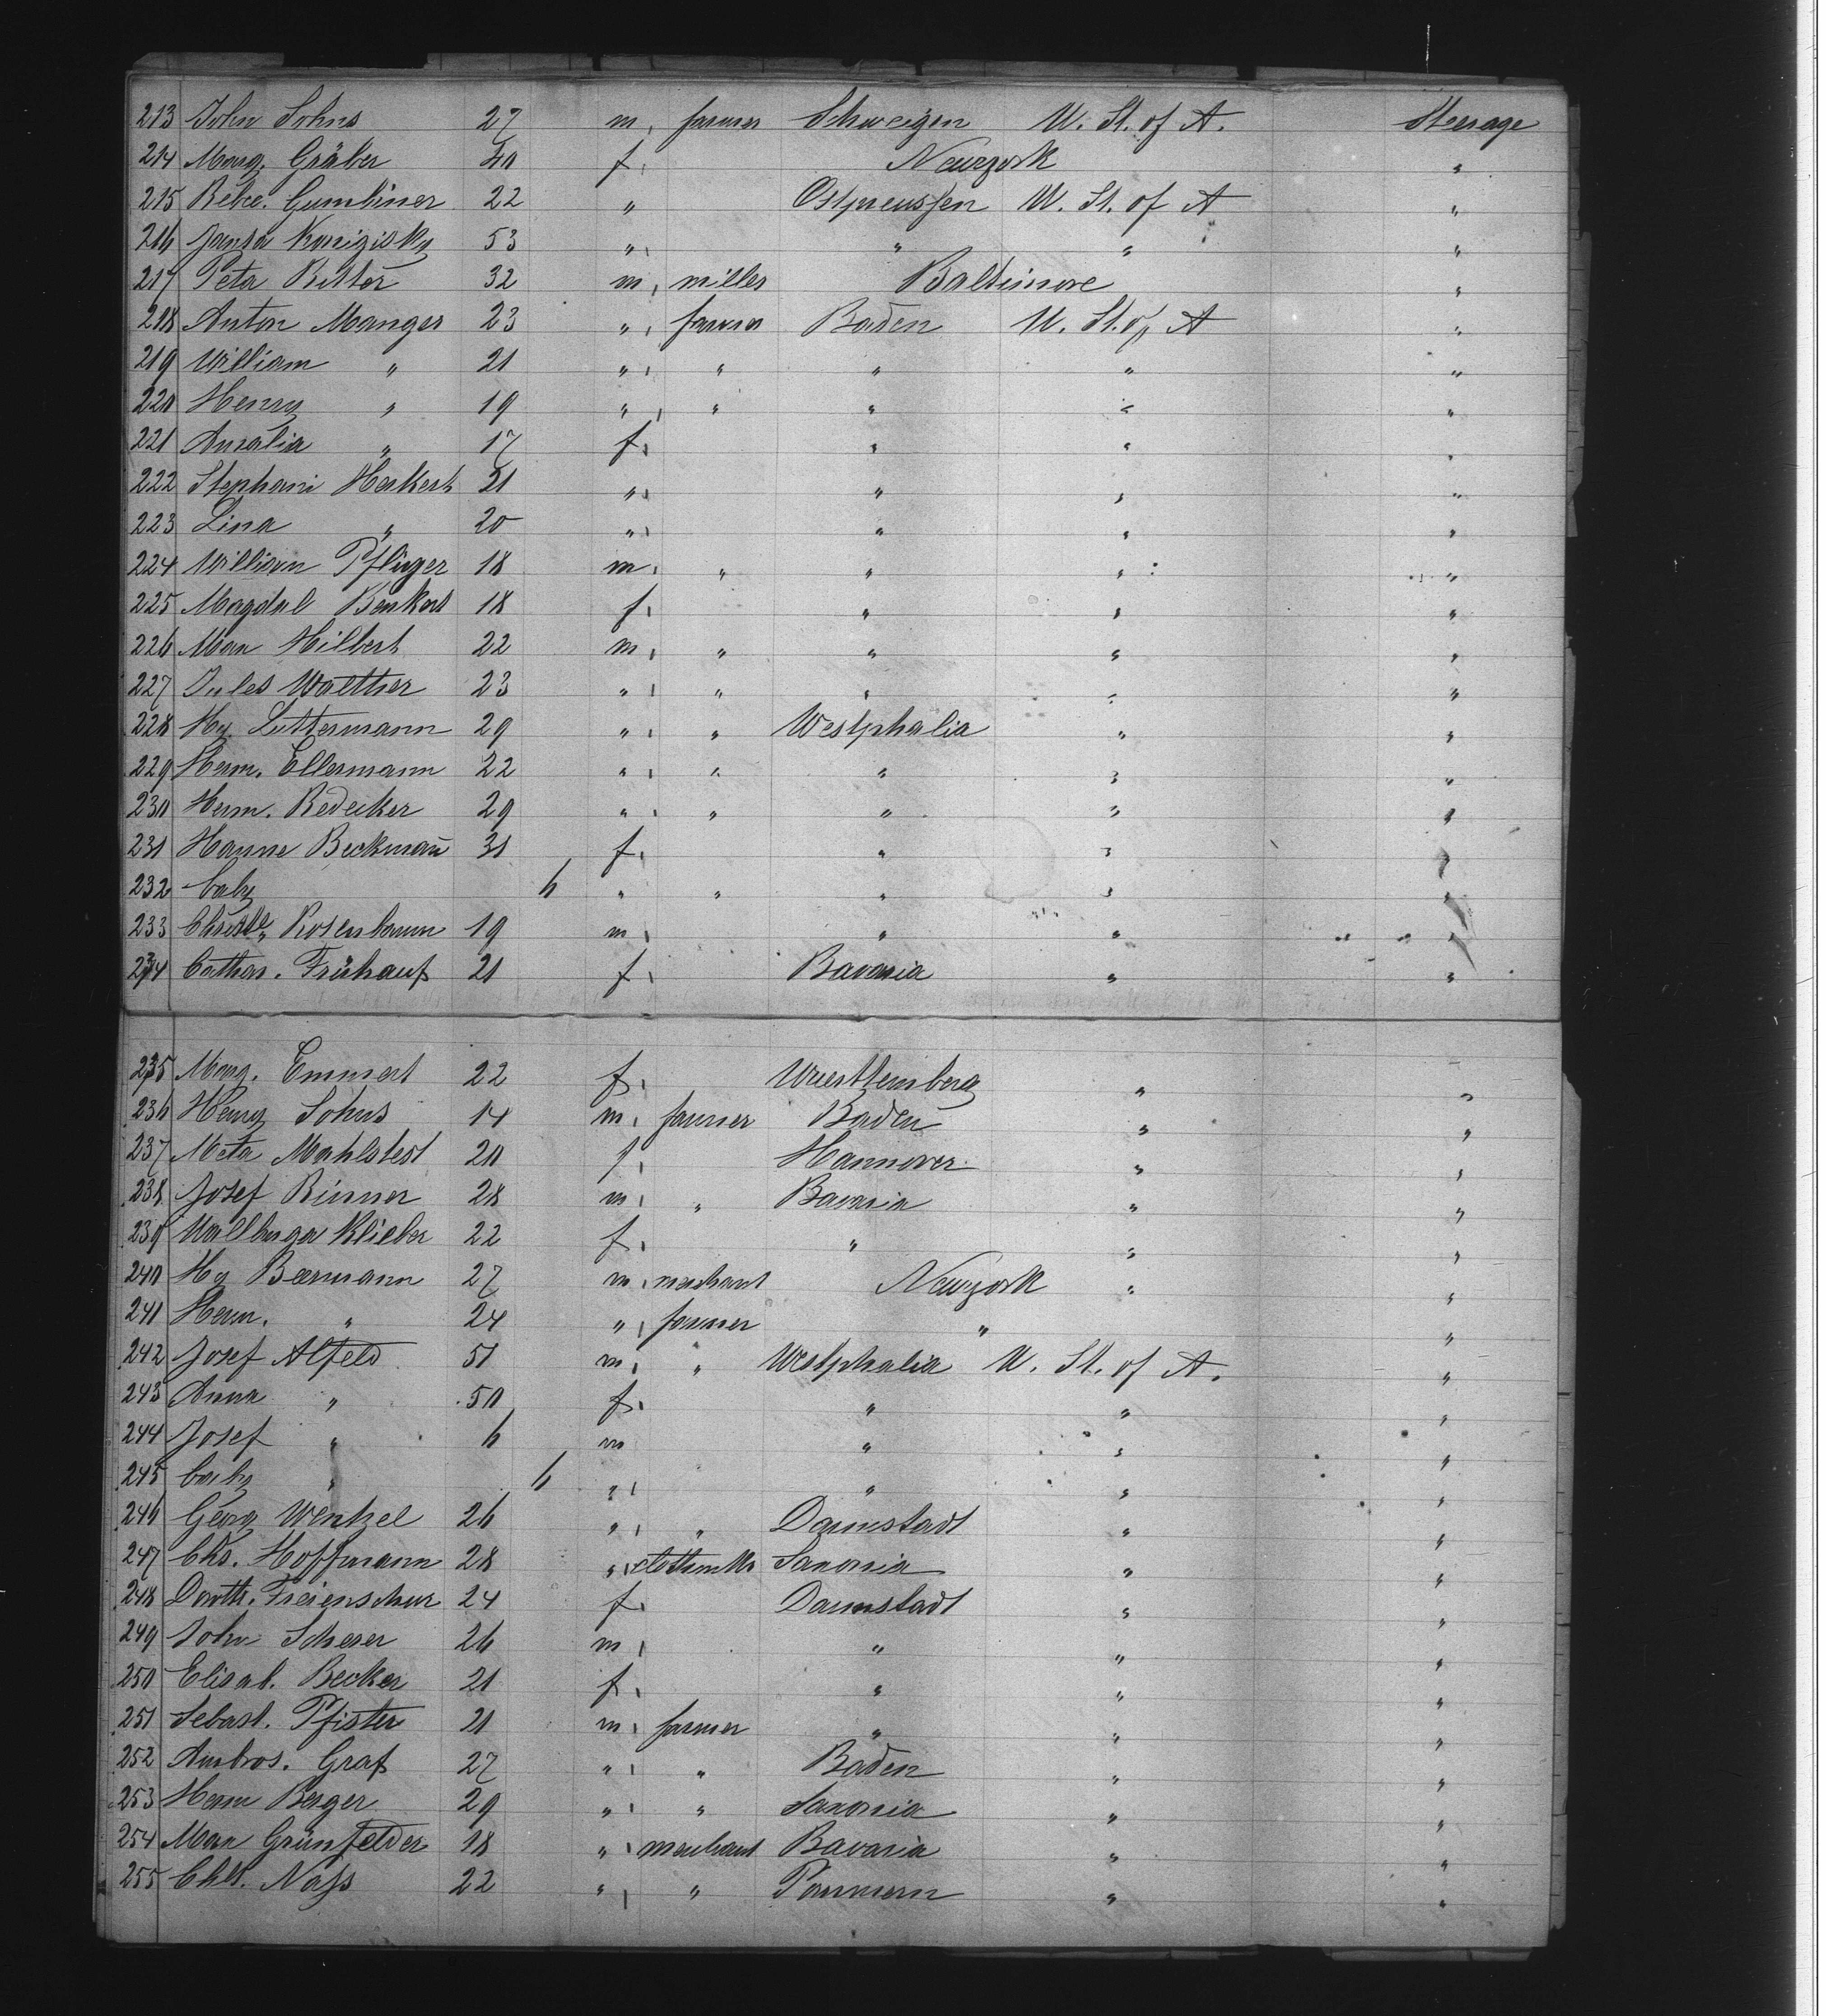 213 John Sohns 27 m. farmer Schweigen U. St. of A. Steerage
214 Marg. Gräber 40 f. Newyork "
215 Rebec. Gumbiner 22 " Ostpreussen U. St. of A "
216 53 " " " "
217 Peter Ritter 32 m. miller Baltimore "
218 Anton Manger 23 " farmer Baden U. St. of A "
219 William " 21 " " " " "
220 Henry " 19 " " " " "
221 Amalia " 17 f. " " "
222 Stephani Herkert 21 " " " "
223 Lina " 20 " " " "
224 William Pflüger 18 m. " " " "
225 Magdal Benkert 18 f. " " "
226 Max Hilbert 22 m. " " " "
227 Jules Walther 23 " " " " "
228 Hy. Luttermann 29 " " Westphalia " "
229 Herm. Ellermann 22 " " " " "
230 Herm. Redecker 29 " " " " "
231 Hanne Beckman̄ 31 f. " " "
232 baby 6 " " " " "
233 Rosenbaum 19 m. " " "
234 Cathar. Frühauf 21 f. Bavaria " "
235 Marg. Emmert 22 f. Wuerttemberg " "
236 Henry Sohns 14 m. farmer Baden " "
237 Meta Mahlstedt 20 f. Hannover " "
238 Josef Binner 28 m. " Bavaria " "
239 Wallburga Klieber 22 f. " " "
240 Hy Beermann 27 m. merchant Newyork " "
241 Herm. " 24 " farmer " "
242 Josef Alfeld 51 m. " Westphalia U. St. of A. "
243 Anna " 50 f. " " "
244 Josef " 6 m " " "
245 baby " 6 " " " "
246 Georg Wenzel 26 " " Darmstadt " "
247 Chs. Hoffmann 28 " Saxonia " "
248 Doroth. Freienschur 24 f. Darmstadt " "
249 John Scherer 26 m. " " "
250 Elisab. Becker 21 f. " " "
251 Sebast. Pfister 21 m. farmer " " "
252 Ambros. Graf 27 " " Baden " "
253 Herm Berger 29 " " Saxonia " "
254 Max Grünfelder 18 " merchant Bavaria " "
255 Chst. Nass 22 " " Pommern " "